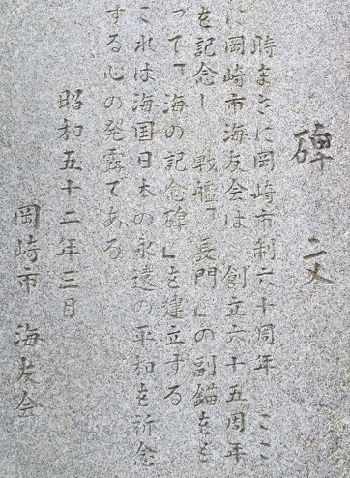 碑文
時まさに岡崎市制六十周年 ここ
に岡崎市海友会は 創立六十五周年
を記念し 戦艦「長門」の副錨をと
って「海の記念碑」を建立する
これは海国日本の永遠の平和を祈念
する心の発露である
昭和五十二年三日
岡崎市 海友会